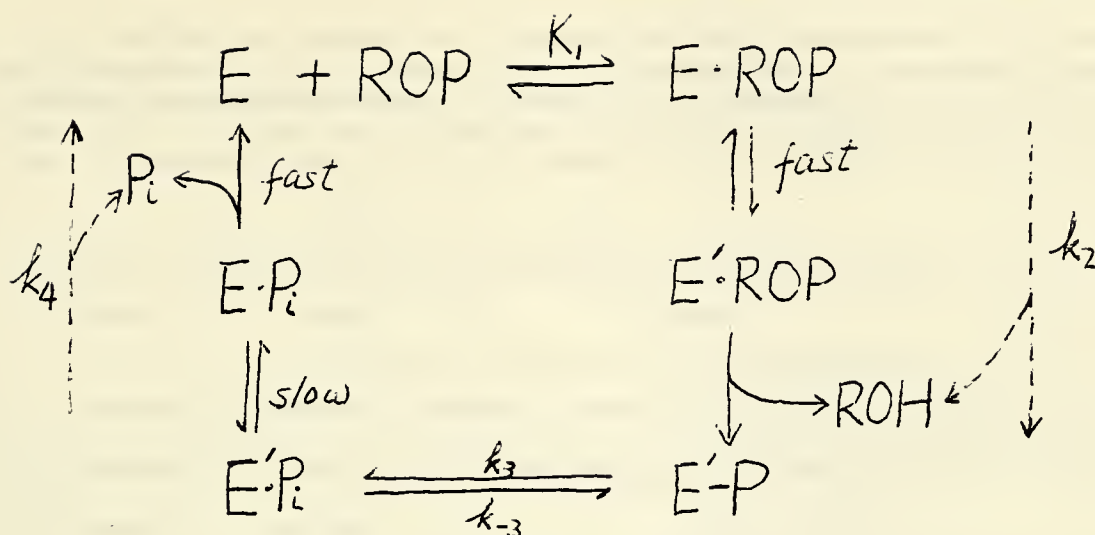 E + ROP ⇌ K₁ E·ROP
Pᵢ fast fast
k₄ E·Pᵢ E′·ROP k₂
slow ROH
E′·Pᵢ k₃ E′-P
k₋₃